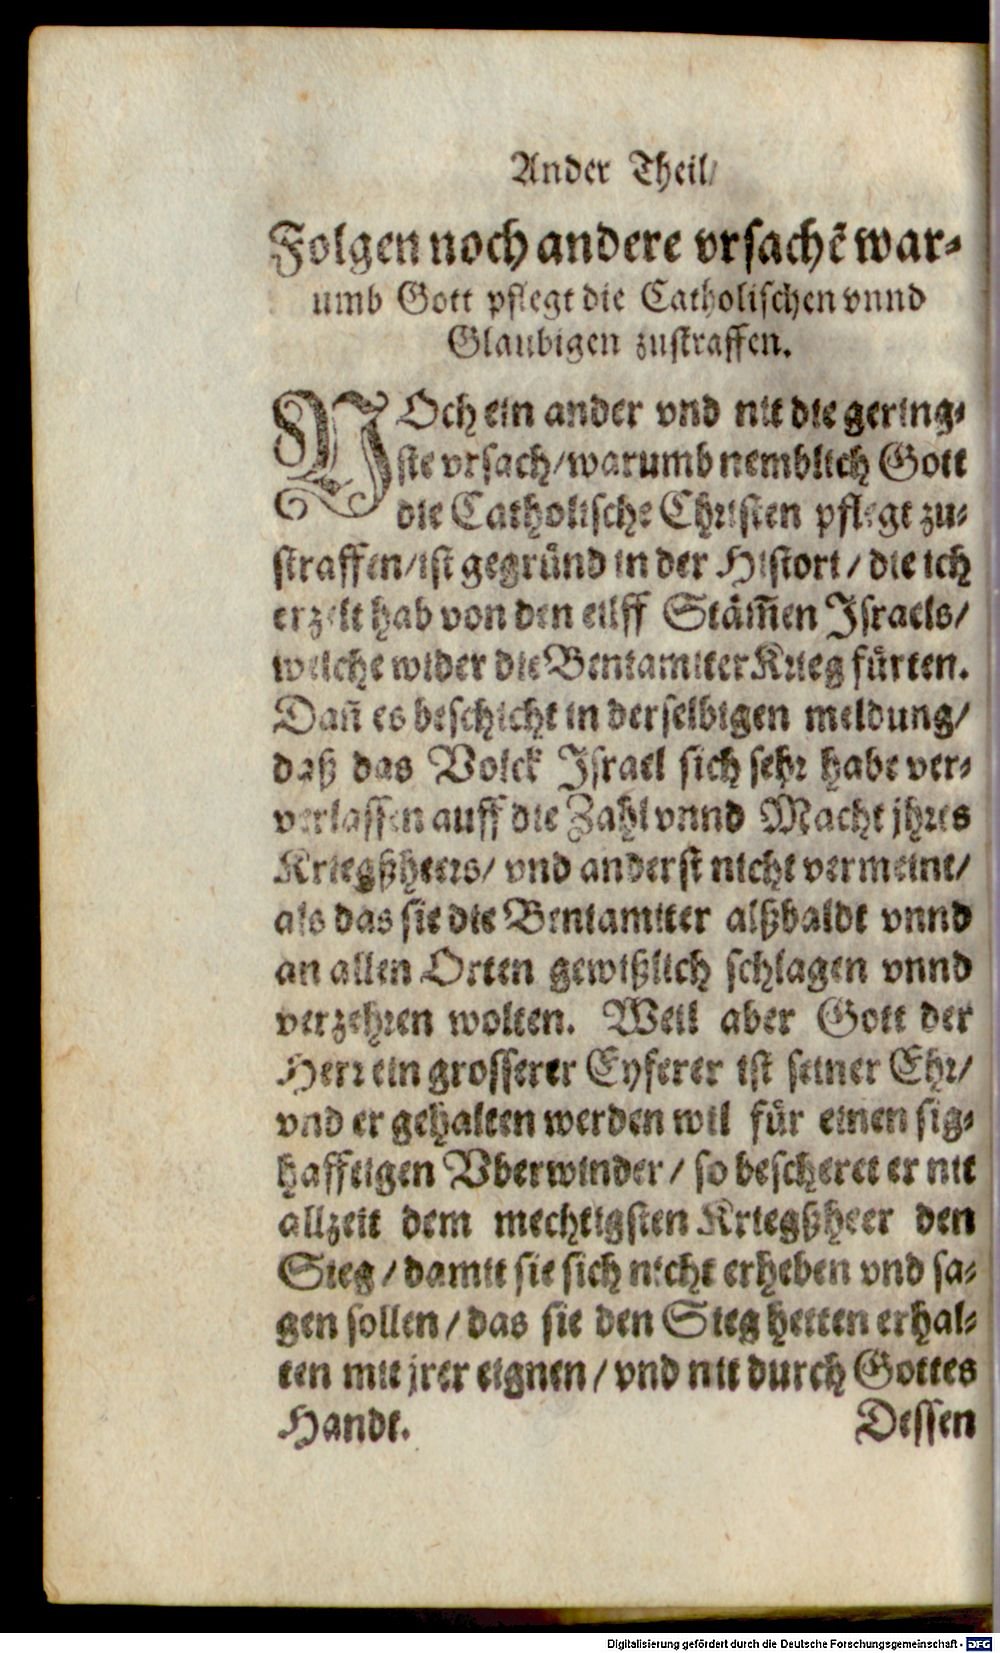 Ander Theil/
Folgen noch andere vrsachẽ war-
umb Gott pflegt die Catholischen vnnd
Glaubigen zustraffen.
NOch ein ander vnd nit die gering-
ste vrsach/ warumb nemblich Gott
die Catholische Christen pflegt zu-
straffen/ ist gegründ in der Histori/ die ich
erzelt hab von den eilff Stäm̃en Israels/
welche wider die Beniamiter Krieg fürten.
Dañ es beschicht in derselbigen meldung/
daß das Volck Israel sich sehr habe ver-
verlassen auff die Zahl vnnd Macht jhres
Kriegßheers/ vnd anderst nicht vermeint/
als das sie die Beniamiter alßbaldt vnnd
an allen Orten gewißlich schlagen vnnd
verzehren wolten. Weil aber Gott der
Herr ein grosserer Eyferer ist seiner Ehr/
vnd er gehalten werden wil für einen sig-
hafftigen Vberwinder/ so bescheret er nit
allzeit dem mechtigsten Kriegßheer den
Sieg/ damit sie sich nicht erheben vnd sa-
gen sollen/ das sie den Sieg hetten erhal-
ten mit jrer eignen/ vnd nit durch Gottes
Handt. Dessen
Digitalisierung gefördert durch die Deutsche Forschungsgemeinschaft - DFG